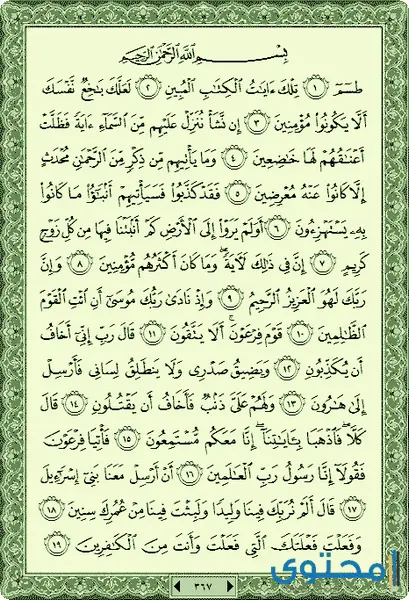 بِسْمِ اللَّهِ الرَّحْمَٰنِ الرَّحِيمِ
طسٓمٓ ١ تِلْكَ ءَايَٰتُ الْكِتَٰبِ الْمُبِينِ ٢ لَعَلَّكَ بَٰخِعٌ نَّفْسَكَ
أَلَّا يَكُونُوا مُؤْمِنِينَ ٣ إِن نَّشَأْ نُنَزِّلْ عَلَيْهِم مِّنَ السَّمَآءِ ءَايَةً فَظَلَّتْ
أَعْنَٰقُهُمْ لَهَا خَٰضِعِينَ ٤ وَمَا يَأْتِيهِم مِّن ذِكْرٍ مِّنَ الرَّحْمَٰنِ مُحْدَثٍ
إِلَّا كَانُوا عَنْهُ مُعْرِضِينَ ٥ فَقَدْ كَذَّبُوا فَسَيَأْتِيهِمْ أَنۢبَٰٓؤُا مَا كَانُوا
بِهِۦ يَسْتَهْزِءُونَ ٦ أَوَلَمْ يَرَوْا إِلَى الْأَرْضِ كَمْ أَنۢبَتْنَا فِيهَا مِن كُلِّ زَوْجٍ
كَرِيمٍ ٧ إِنَّ فِي ذَٰلِكَ لَءَايَةً ۖ وَمَا كَانَ أَكْثَرُهُم مُّؤْمِنِينَ ٨ وَإِنَّ
رَبَّكَ لَهُوَ الْعَزِيزُ الرَّحِيمُ ٩ وَإِذْ نَادَىٰ رَبُّكَ مُوسَىٰٓ أَنِ ائْتِ الْقَوْمَ
الظَّٰلِمِينَ ١٠ قَوْمَ فِرْعَوْنَ ۚ أَلَا يَتَّقُونَ ١١ قَالَ رَبِّ إِنِّيٓ أَخَافُ
أَن يُكَذِّبُونِ ١٢ وَيَضِيقُ صَدْرِي وَلَا يَنطَلِقُ لِسَانِي فَأَرْسِلْ
إِلَىٰ هَٰرُونَ ١٣ وَلَهُمْ عَلَيَّ ذَنۢبٌ فَأَخَافُ أَن يَقْتُلُونِ ١٤ قَالَ
كَلَّا ۖ فَاذْهَبَا بِـَٔايَٰتِنَآ ۖ إِنَّا مَعَكُم مُّسْتَمِعُونَ ١٥ فَأْتِيَا فِرْعَوْنَ
فَقُولَآ إِنَّا رَسُولُ رَبِّ الْعَٰلَمِينَ ١٦ أَنْ أَرْسِلْ مَعَنَا بَنِيٓ إِسْرَٰٓءِيلَ
١٧ قَالَ أَلَمْ نُرَبِّكَ فِينَا وَلِيدًا وَلَبِثْتَ فِينَا مِنْ عُمُرِكَ سِنِينَ ١٨
وَفَعَلْتَ فَعْلَتَكَ الَّتِي فَعَلْتَ وَأَنتَ مِنَ الْكَٰفِرِينَ ١٩
٣٦٧
محتوى